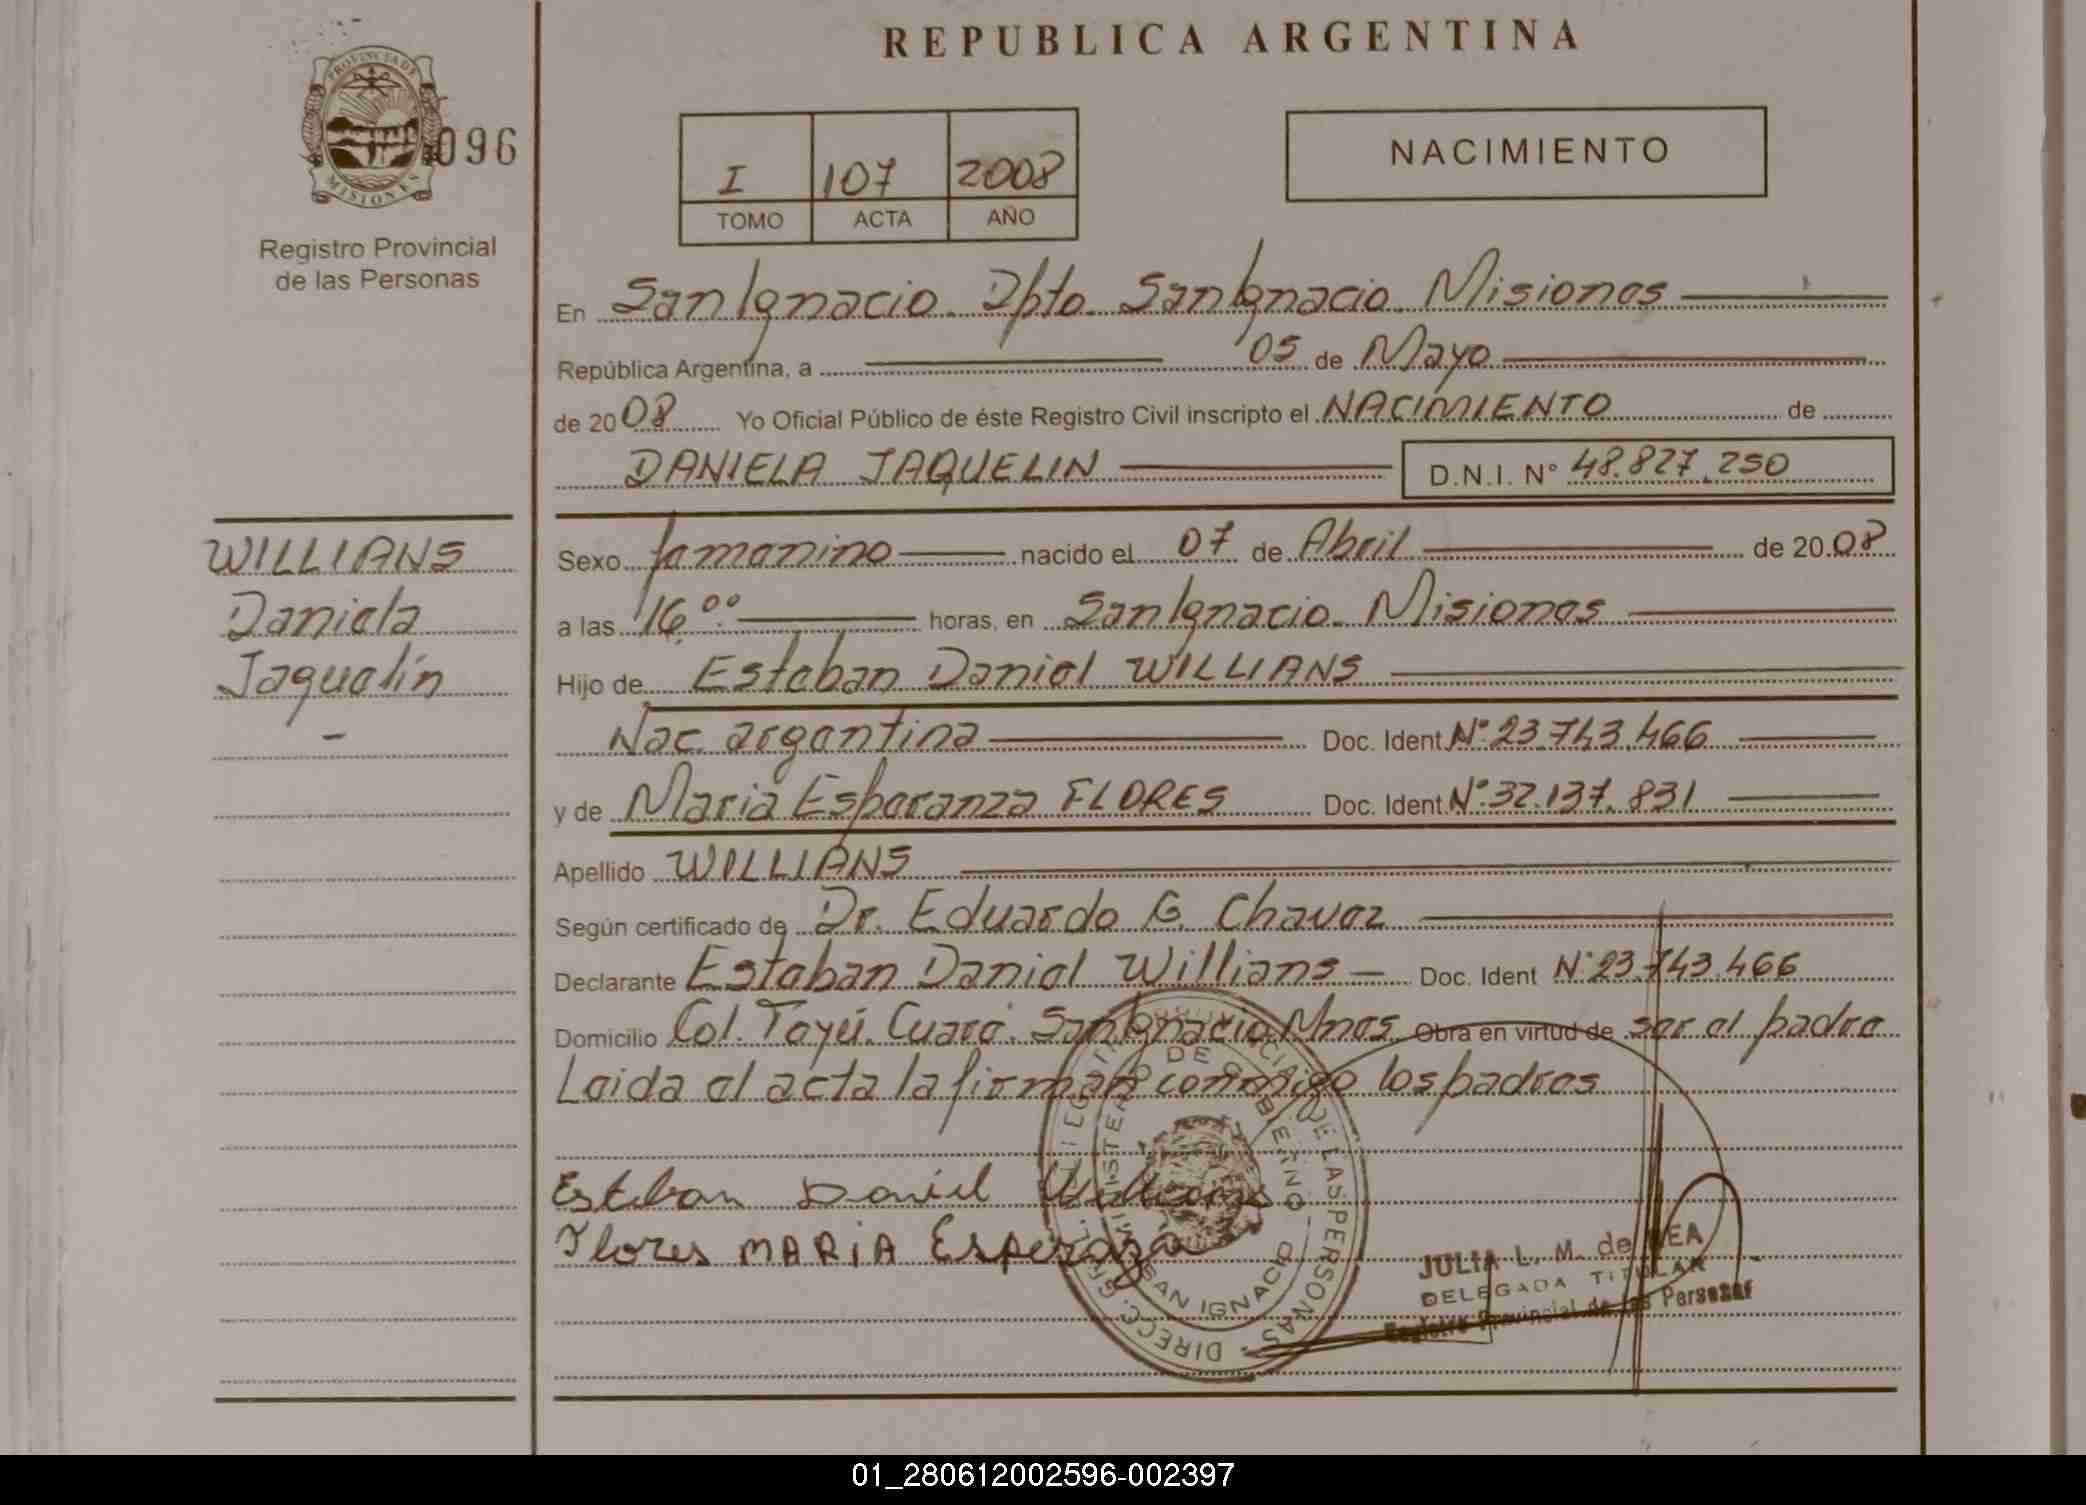 REPUBLICA ARGENTINA
PROVINCIA DE MISIONES
096
Registro Provincial
de las Personas
I 107 2008
TOMO ACTA AÑO
NACIMIENTO
En San Ignacio. Dpto. San Ignacio. Misiones
República Argentina, a 05 de Mayo
de 2008 Yo Oficial Público de éste Registro Civil inscripto el NACIMIENTO de
DANIELA JAQUELIN D.N.I. N° 48.827.250
WILLIANS
Daniela
Jaquelín
Sexo femenino nacido el 07 de Abril de 2008
a las 16,00 horas, en San Ignacio. Misiones
Hijo de Esteban Daniel WILLIANS
Nac. argentina Doc. Ident. N° 23.743.466
y de Maria Esperanza FLORES Doc. Ident. N° 32.137.831
Apellido WILLIANS
Según certificado de Dr. Eduardo G. Chavez
Declarante Esteban Daniel Willians Doc. Ident N° 23.743.466
Domicilio Col. Teyú. Cuaré. San Ignacio. Mnes. Obra en virtud de ser el padre
Leida el acta la firman conmigo los padres
Esteban Daniel Willians
Flores MARIA Esperanza
DE LAS PERSONAS
DE GOBIERNO
SAN IGNACIO
JULIA L. M. de
DELEGADA TITULAR
Registro Provincial de las Personas
01_280612002596-002397